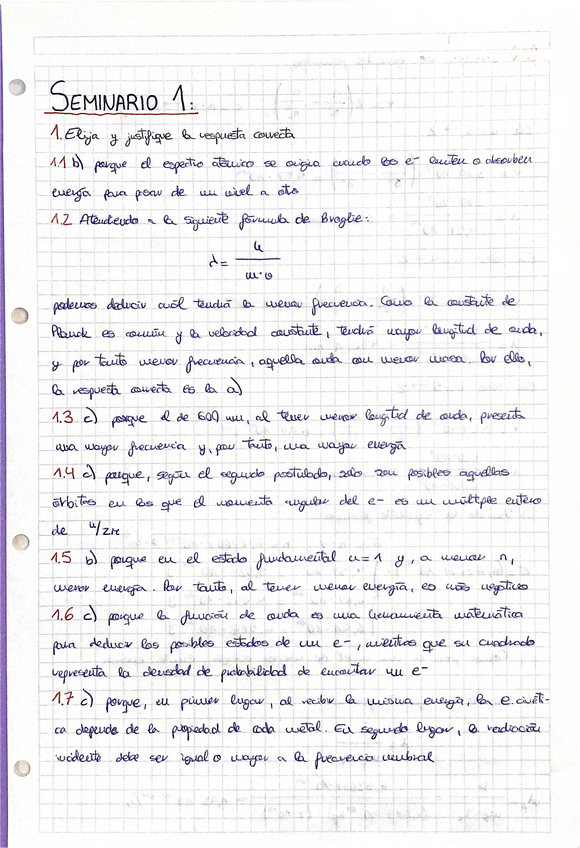 SEMINARIO 1:
1. Elija y justifique la respuesta correcta
1.1 b) porque el espectro atómico se origia cuando los e- emiten o absorben
energía para pasar de un nivel a otro
1.2 Atendiendo a la siguiente fórmula de Broglie:
λ = h / m·v
podemos deducir cuál tendrá la menor frecuencia. Como la constante de
Planck es común y la velocidad constante, tendrá mayor longitud de onda,
y por tanto menor frecuencia, aquella onda con menor masa. Por ello,
la respuesta correcta es la a)
1.3 c) porque el de 600 nm, al tener menor longitud de onda, presenta
una mayor frecuencia y, por tanto, una mayor energía
1.4 c) porque, según el segundo postulado, solo son posibles aquellas
órbitas en las que el momento angular del e- es un múltiple entero
de h/2π
1.5 b) porque en el estado fundamental n=1 y, a menor n,
menor energía. Por tanto, al tener menor energía, es más negativo
1.6 c) porque la función de onda es una herramienta matemática
para deducir los posibles estados de un e-, mientras que su cuadrado
representa la densidad de probabilidad de encontrar un e-
1.7 c) porque, en primer lugar, al recibir la misma energía, la e. cinéti-
ca depende de la propiedad de cada metal. En segundo lugar, la radiación
incidente debe ser igual o mayor a la frecuencia umbral